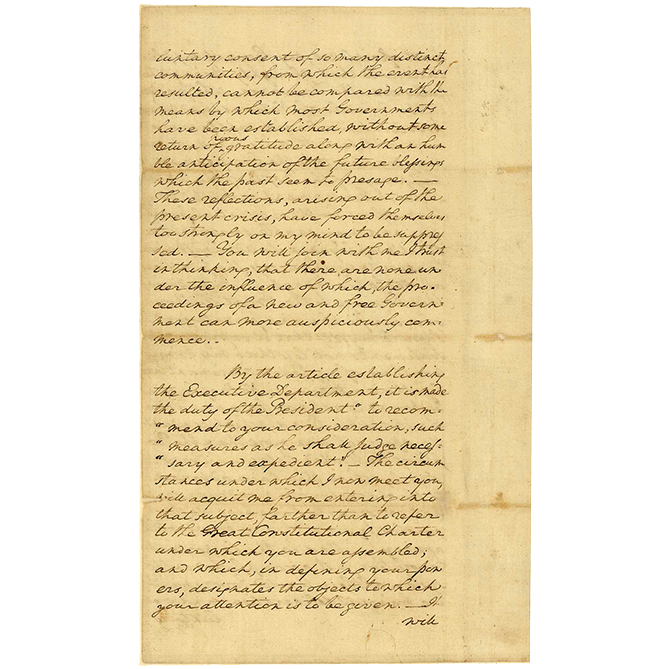 luntary consent of so many distinct
communities, from which the event has
resulted, cannot be compared with the
means by which most Governments
have been established, without some
return of pious gratitude along with an hum
ble anticipation of the future blessings
which the past seem to presage. —
These reflections, arising out of the
present crisis, have forced themselves
too strongly on my mind to be suppres
sed. — You will join with me I trust
in thinking, that there are none un
der the influence of which, the pro-
ceedings of a new and free Govern-
ment can more auspiciously com-
mence. -
By the article establishing
the Executive Department, it is made
the duty of the President "to recom-
"mend to your consideration, such
"measures as he shall judge neces-
"sary and expedient". — The circum
stances under which I now meet you,
will acquit me from entering into
that subject, farther than to refer
to the Great Constitutional Charter
under which you are assembled;
and which, in defining your pow
ers, designates the objects to which
your attention is to be given. — It
will